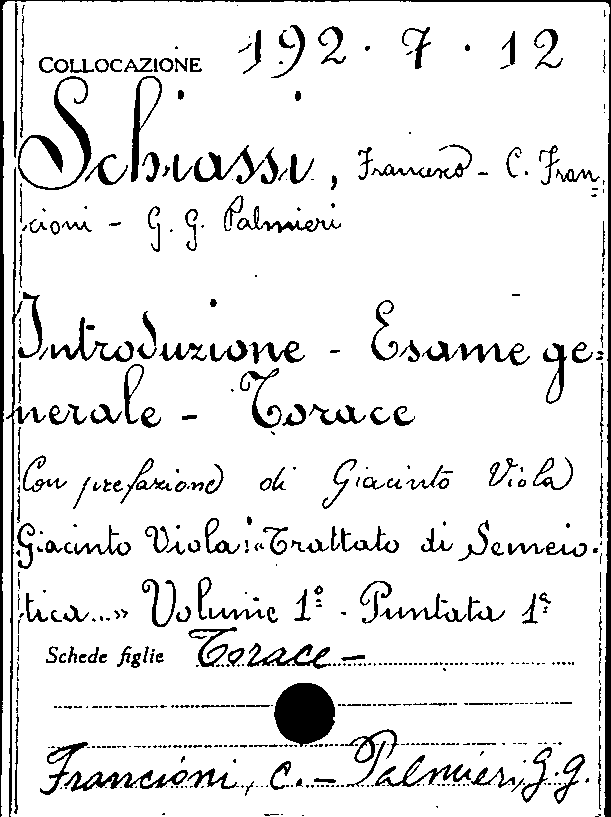 COLLOCAZIONE 192 · 7 · 12
Schiassi, Francesco - C. Fran=
cioni - G. G. Palmieri
Introduzione - Esame ge=
nerale - Torace
Con prefazione di Giacinto Viola
Giacinto Viola: «Trattato di Semeio-
tica...» Volume 1º - Puntata 1ª
Schede figlie Torace -
Francioni, C. - Palmieri, G. G.